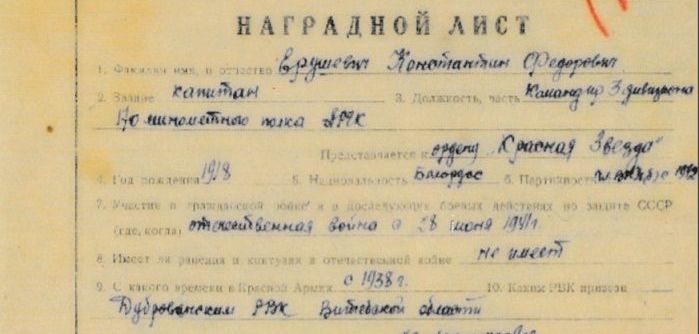 НАГРАДНОЙ ЛИСТ
1. Фамилия имя, и отчество Ерушевич Константин Федорович
2. Звание капитан 3. Должность, часть Командир 3 дивизиона
минометного полка РГК
Представляется к ордену „Красная Звезда"
4. Год рождения 1918 5. Национальность 6. Партийность
7. Участие в гражданской войне и в последующих боевых действиях по защите СССР
(где, когда) отечественная война с 28 июня 1941г.
8. Имеет ли ранения и контузии в отечественной войне не имеет
9. С какого времени в Красной Армии с 1938 г. 10. Каким РВК призван
РВК Витебской области